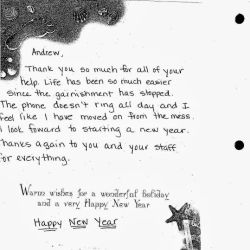 Andrew,
Thank you so much for all of your
help. Life has been so much easier
since the garnishment has stopped.
The phone doesn't ring all day and I
feel like I have moved on from the mess.
I look foward to starting a new year.
Thanks again to you and your staff
for everything.
Warm wishes for a wonderful holiday
and a very Happy New Year
Happy New Year